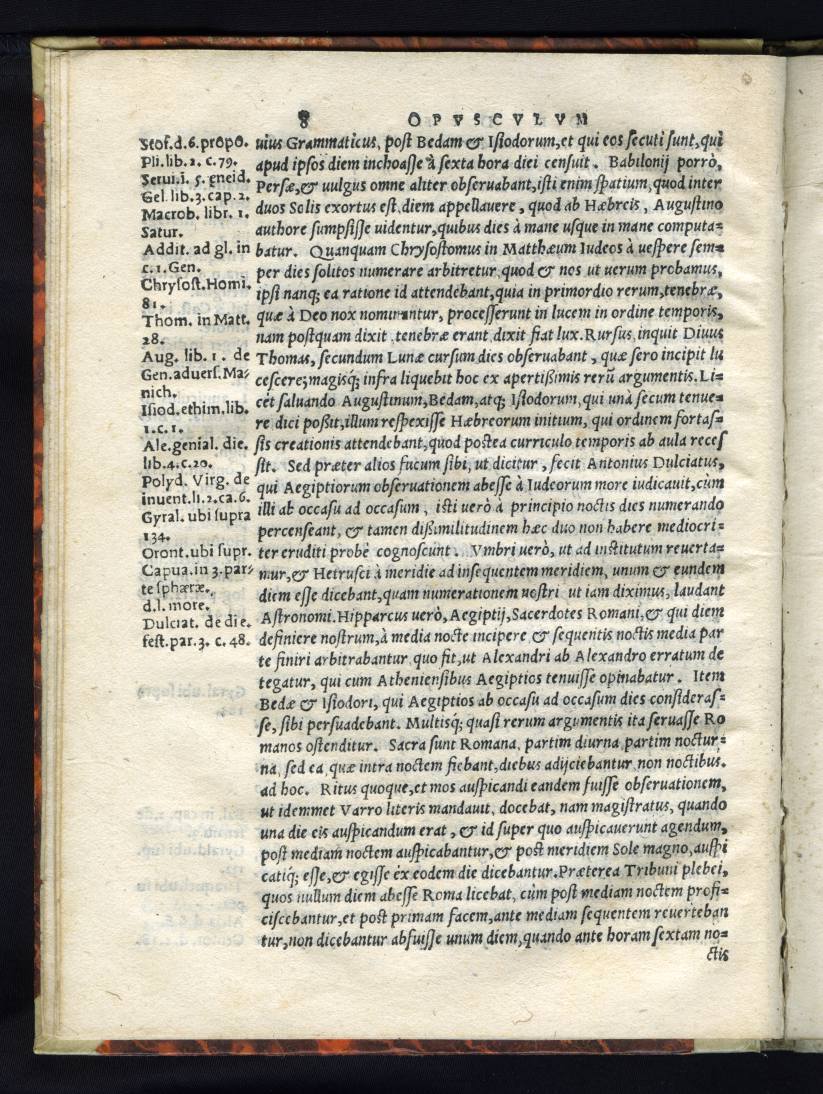 8 OPVSCVLVM
Stof.d.6.propo.
Pli.lib.2. c.79.
Serui.i. 5. ęneid.
Gel.lib.3.cap.2.
Macrob. libr. 1.
Satur.
Addit. ad gl. in
c.1.Gen.
Chrysost.Homi.
81.
Thom. in Matt.
28.
Aug. lib. 1. de
Gen.aduers.Ma-
nich.
Isiod.ethim.lib.
1.c.1.
Ale.genial. die.
lib.4.c.20.
Polyd. Virg. de
inuent.li.2.ca.6.
Gyral. ubi supra
134.
Oront.ubi supr.
Capua.in 3.par-
te sphæræ.
d.l. more.
Dulciat. de die.
fest.par.3. c. 48.
uius Grammaticus, post Bedam & Isiodorum,et qui eos secuti sunt,qui
apud ipsos diem inchoasse à sexta hora diei censuit. Babilonij porrò,
Persæ,& uulgus omne aliter obseruabant,isti enim spatium,quod inter
duos Solis exortus est,diem appellauere, quod ab Hæbreis, Augustino
authore sumpsisse uidentur,quibus dies à mane usque in mane computa-
batur. Quanquam Chrysostomus in Matthæum Iudeos à uespere sem-
per dies solitos numerare arbitretur,quod & nos ut uerum probamus,
ipsi nanq; ea ratione id attendebant,quia in primordio rerum,tenebræ,
quæ à Deo nox nominantur, processerunt in lucem in ordine temporis,
nam postquam dixit tenebræ erant dixit fiat lux.Rursus inquit Diuus
Thomas, secundum Lunæ cursum dies obseruabant, quæ sero incipit lu
cescere;magisq; infra liquebit hoc ex apertißimis rerũ argumentis.Li-
cet saluando Augustinum,Bedam,atq; Isiodorum,qui unà secum tenue-
re dici poßit,illum respexisse Hæbreorum initium, qui ordinem fortas-
sis creationis attendebant,quod postea curriculo temporis ab aula reces
sit. Sed præter alios fucum sibi, ut dicitur, fecit Antonius Dulciatus,
qui Aegiptiorum obseruationem abesse à Iudeorum more iudicauit,cùm
illi ab occasu ad occasum, isti uerò à principio noctis dies numerando
percenseant, & tamen dißimilitudinem hæc duo non habere mediocri-
ter eruditi probè cognoscunt. Vmbri uerò, ut ad institutum reuerta-
mur,& Hetrusci à meridie ad insequentem meridiem, unum & eundem
diem esse dicebant,quam numerationem nostri ut iam diximus, laudant
Astronomi.Hipparcus uerò, Aegiptij,Sacerdotes Romani,& qui diem
definiere nostrum,à media nocte incipere & sequentis noctis media par
te finiri arbitrabantur quo fit,ut Alexandri ab Alexandro erratum de
tegatur, qui cum Atheniensibus Aegiptios tenuisse opinabatur. Item
Bedæ & Isiodori, qui Aegiptios ab occasu ad occasum dies consideras-
se, sibi persuadebant. Multisq; quasi rerum argumentis ita seruasse Ro
manos ostenditur. Sacra sunt Romana, partim diurna partim noctur-
na, sed ea quæ intra noctem fiebant,diebus adijciebantur non noctibus.
ad hoc. Ritus quoque,et mos auspicandi eandem fuisse obseruationem,
ut idemmet Varro literis mandauit, docebat, nam magistratus, quando
una die eis auspicandum erat, & id super quo auspicauerunt agendum,
post mediam noctem auspicabantur,& post meridiem Sole magno,auspi
catiq; esse,& egisse ex eodem die dicebantur.Præterea Tribuni plebei,
quos nullum diem abesse Roma licebat, cùm post mediam noctem profi-
ciscebantur,et post primam facem,ante mediam sequentem reuerteban
tur,non dicebantur abfuisse unum diem,quando ante horam sextam no-
ctis